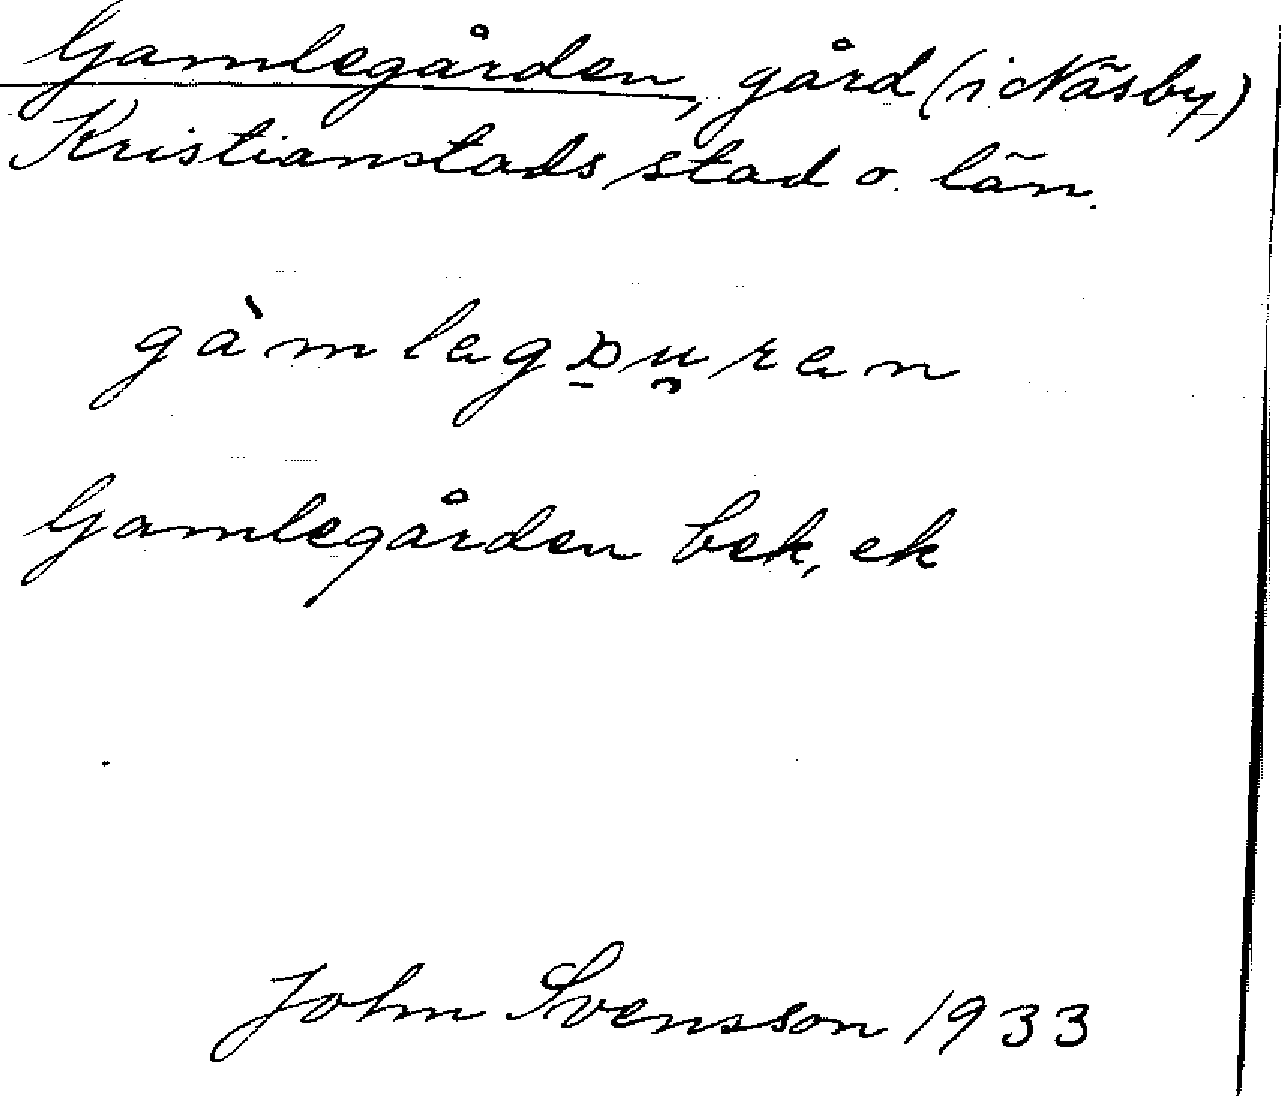 Gamlegården, gård (i Näsby)
Kristianstads stad o. län.
gàmlagɒ̱u̯ran
Gamlegården bek, ek
John Svensson 1933